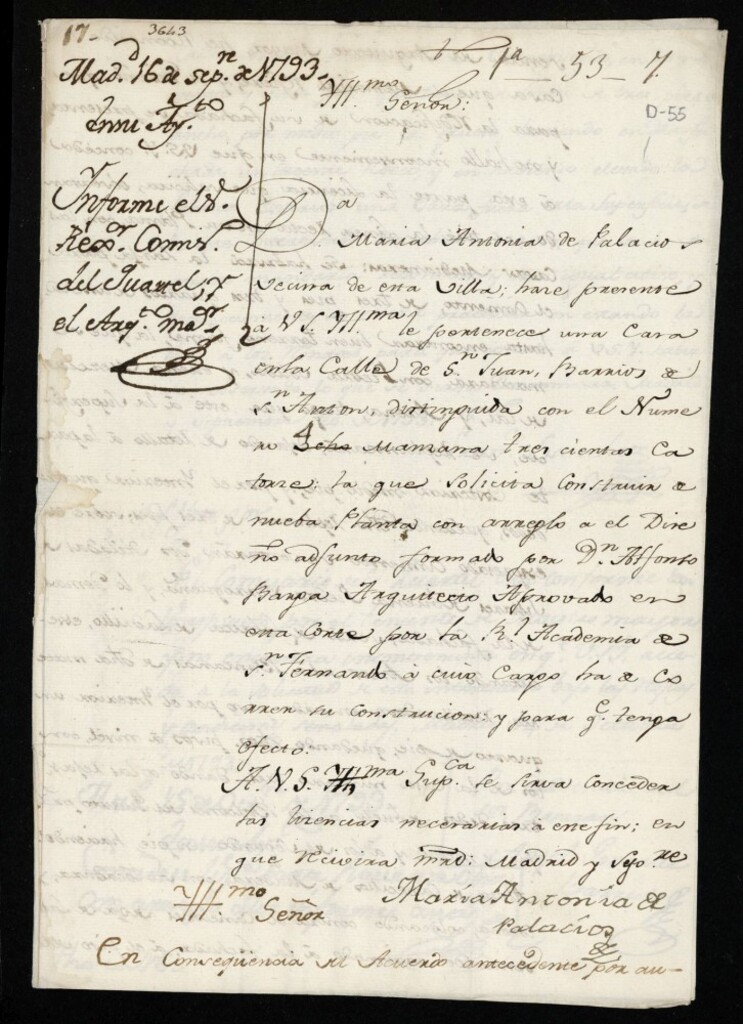 17-
3643
1ª 53 7.
D-55
Mad.d 16 de sep.re de 1793
en su Ay.to
Informe el S.
Rex.or Comis.
del Quartel, y
el Arq.to ma.or
Yll.mo Señor:
Da
Maria Antonia de Palacios
vecina de esta Villa; hace presente
à V. S. Yll.ma le pertenece una Casa
en la Calle de S.n Juan, Barrios de
S.n Anton, distinguida con el Nume
ro 4 Manzana trescientas Ca
torze; la que solicita Construir de
nueba Planta con arreglo a el Dise
ño adjunto formado por D.n Alfonso
Barga Arquitecto Aprovado en
esta Corte por la R.l Academia de
S.n Fernando à cuio Cargo ha de Co
rrer su Construcion: y para q.e tenga
efecto:
A. V. S. Yll.ma Sup.ca se sirva conceder
las licencias necesarias à este fin; en
que recivira mrd: Madrid y Sep.re
Yll.mo Señor
María Antonia de
Palacios
En Conseqüencia del Acuerdo antecedente por au-